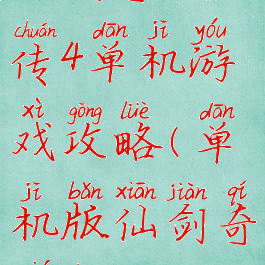 chuán dān jī yóu
传4单机游
xì gōng lüè dān
戏攻略(单
jī bǎn xiān jiàn qí
机版仙剑奇